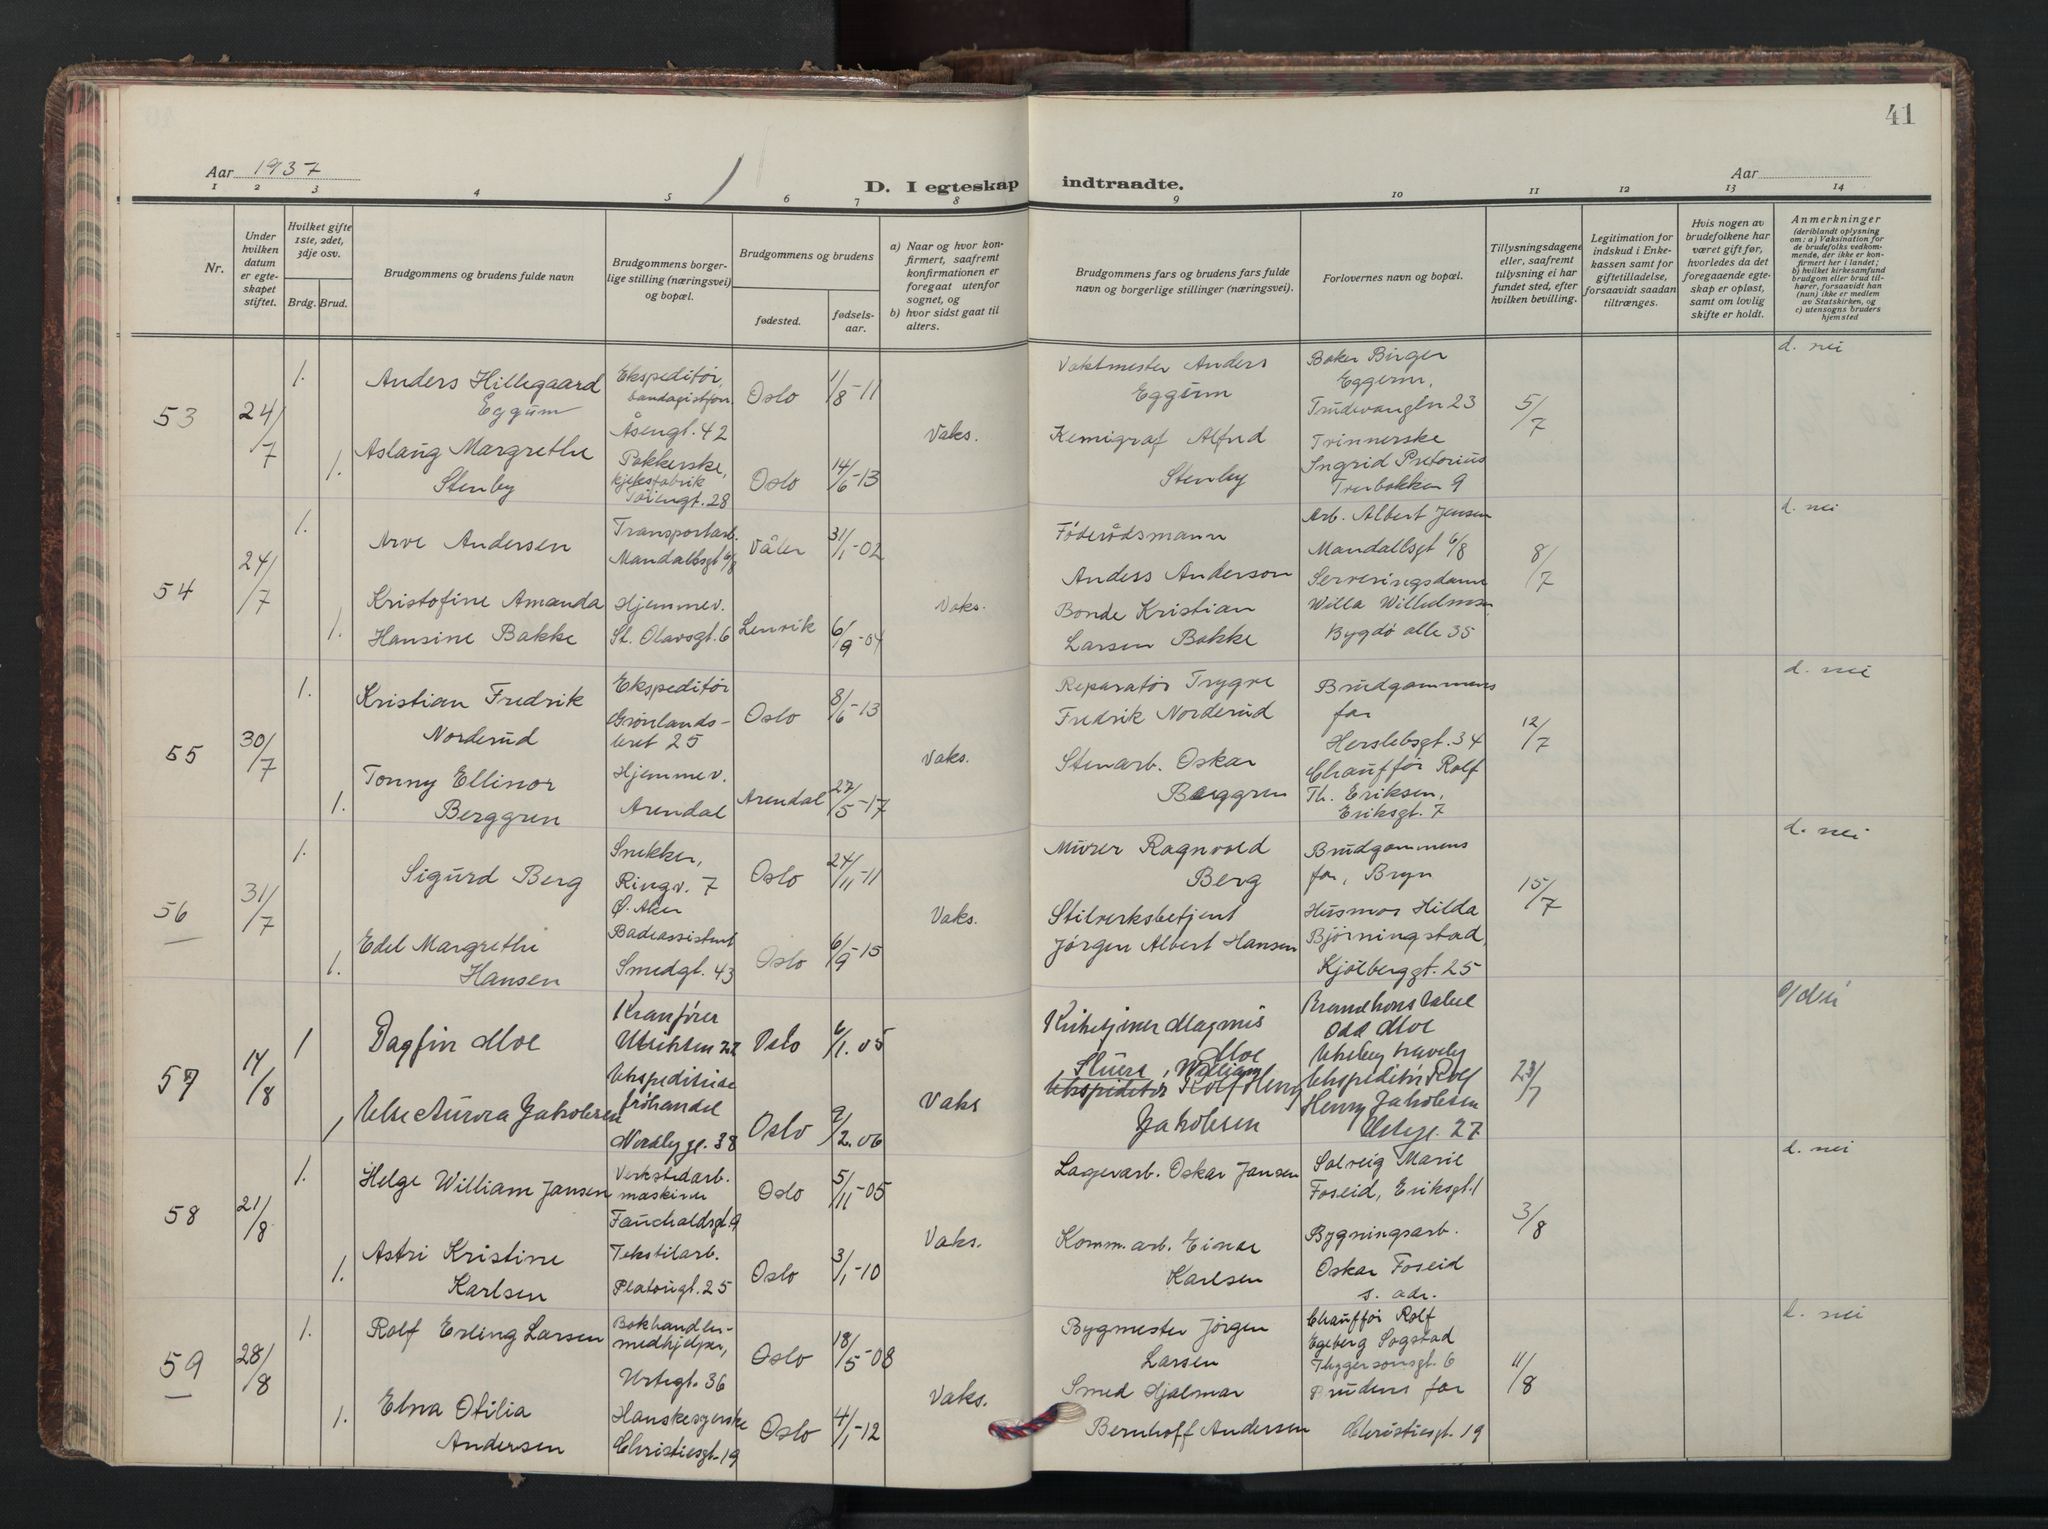 41
Aar 1937
D. I egteskap indtraadte.
Aar
1 2 3 4 5 6 7 8 9 10 11 12 13 14
Nr.
Under hvilken datum er egteskapet stiftet.
Hvilket gifte 1ste, 2det, 3dje osv.
Brdg. Brud.
Brudgommens og brudens fulde navn
Brudgommens borgerlige stilling (næringsvei) og bopæl.
Brudgommens og brudens
fødested.
fødselsaar.
a) Naar og hvor konfirmert, saafremt konfirmationen er foregaat utenfor sognet, og
b) hvor sidst gaat til alters.
Brudgommens fars og brudens fars fulde navn og borgerlige stillinger (næringsvei).
Forlovernes navn og bopæl.
Tillysningsdagene eller, saafremt tillysning ei har fundet sted, efter hvilken bevilling.
Legitimation for indskud i Enkekassen samt for giftetilladelse, forsaavidt saadan tiltrænges.
Hvis nogen av brudefolkene har været gift før, hvorledes da det foregaaende egteskap er opløst, samt om lovlig skifte er holdt.
Anmerkninger
(deriblandt oplysning om: a) Vaksination for de brudefolks vedkommende, der ikke er konfirmert her i landet;
b) hvilket kirkesamfund brudgom eller brud tilhører, forsaavidt han (hun) ikke er medlem av Statskirken, og
c) utensogns bruders hjemsted
53
24/7
1.
Anders Hillegaard
Eggum
Ekspeditør,
bandagistforr.
Åsengt. 42
Oslo
1/8-11
Vaktmester Anders
Eggum
Baker Birger
Eggerm,
Trudvangln 23
5/7
d. nei
1.
Aslaug Margrethe
Stenby
Pakkerske,
kjeksfabrik
Tøiengt. 28
Oslo
14/6-13
Vaks.
Kemigraf Alfred
Stenby
Trinnerske
Ingrid Pretorius
Trerbakken 9
54
24/7
1.
Arve Andersen
Transportarb.
Mandallsgt 6/8
Våler
31/1-02
Føderådsmann
Anders Anderson
Arb. Albert Jensen
Mandallsgt 6/8
8/7
d. nei
1.
Kristofine Amanda
Hansine Bakke
Hjemmev.
St. Olavsgt. 6
Lenvik
6/9-04
Vaks.
Bonde Kristian
Larsen Bakke
Serveringsdame
Willa Wilhelmsen
Bygdø alle 35
55
30/7
1.
Kristian Fredrik
Norderud
Ekspeditør
Grønlands-
leret 25
Oslo
8/6-13
Reparatør Trygve
Fredrik Norderud
Brudgommens
far
Herslebsgt. 34
12/7
d. nei
1.
Tonny Ellinor
Berggren
Hjemmev.
Arendal
Arendal
27/5-17
Vaks.
Stenarb. Oskar
Berggren
Chauffør Rolf
Th. Eriksen,
Eriksgt. 7
56
31/7
1.
Sigurd Berg
Snekker,
Ringv. 7
Ø. Aker
Oslo
24/11-11
Murer Ragnvald
Berg
Brudgommens
far, Bryn
15/7
d. nei
1.
Edel Margrethe
Hansen
Badeassistent
Smedgt. 43
Oslo
6/9-15
Vaks.
Stilverksbetjent
Jørgen Albert Hansen
Husmor Hilda
Bjørningstad,
Kjølberggt. 25
57
14/8
1
Dagfin Moe
Kranfører
Oslo
6/1.05
Kirketjener Magnus
Moe
Brandkonstabel
Odd Moe
23/7
d/ nei
1
Else Aurora Jakobsen
Ekspeditrise
frøhandel
Nordbygt. 38
Oslo
9/2.06
Vaks
Stuert, William
Ekspeditør Rolf Henry
Jakobsen
Ekspeditør Rolf
Henry Jakobsen
27
58
21/8
1.
Helge William Jansen
Verkstedarb.
maskinv.
Fauchaldsgt. 9
Oslo
5/11-05
Lagerarb. Oskar Jansen
Solveig Marie
Foseid, Eriksgt. 1
3/8
d. nei
1.
Astri Kristine
Karlsen
Tekstilarb.
Platougt. 25
Oslo
3/1-10
Vaks.
Komm.arb. Einar
Karlsen
Bygningsarb.
Oskar Foseid
s. adr.
59
28/8
1.
Rolf Erling Larsen
Bokhandler-
medhjelper,
Urtegt. 36
Oslo
18/5-08
Bygmester Jørgen
Larsen
Chauffør Rolf
Egeberg Sogstad
Thygersonsgt. 6
11/8
d. nei
1.
Elna Otilia
Andersen
Hanskesyerske
Christiesgt. 19
Oslo
4/1-12
Vaks.
Smed Hjalmar
Bernhoff Andersen
Brudens far
Christiesgt. 19